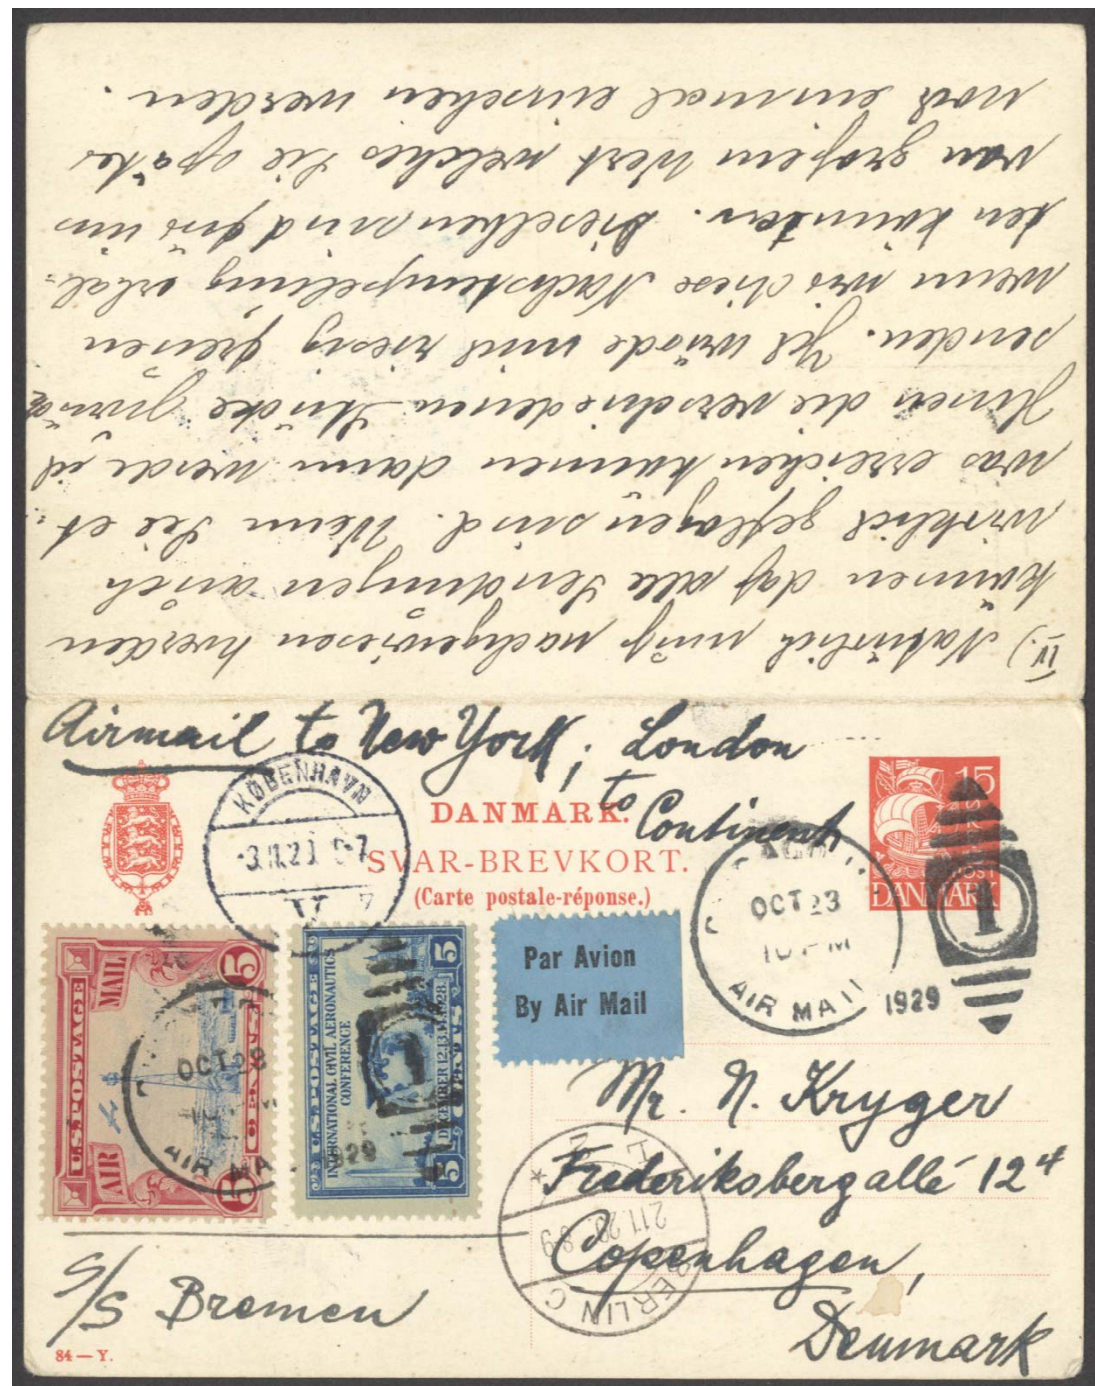 IV.) Natürlich muß nachgewiesen werden
können daß alle Sendungen auch
wirklich geflogen sind. Wenn Sie et-
was erreichen können dann werde ich
Ihnen die verschiedenen Stücke zurück
senden. Ich würde mich riesig freuen
wenn wir diese Nachstempelung erhal-
ten könnten. Dieselben sind für uns
von großem Wert welches Sie später
noch einmal einsehen werden.
Airmail to New York; London
to
Continent
KØBENHAVN
-3.11.29 6-7
DANMARK.
SVAR-BREVKORT.
(Carte postale-réponse.)
15
POST
DANMARK
OCT 23
10 PM
AIR MAIL
1929
1
U.S. POSTAGE
AIR MAIL
5 CENTS 5
OCT 23
AIR MA
U.S. POSTAGE
INTERNATIONAL CIVIL AERONAUTICS
CONFERENCE
DECEMBER 12.13.14.1928.
5 CENTS 5
1
929
Par Avion
By Air Mail
Mr. N. Kryger
Frederiksbergallé 12⁴
Copenhagen,
Denmark
BERLIN C
2.11.29. 8-9
S/S Bremen
84 — Y.